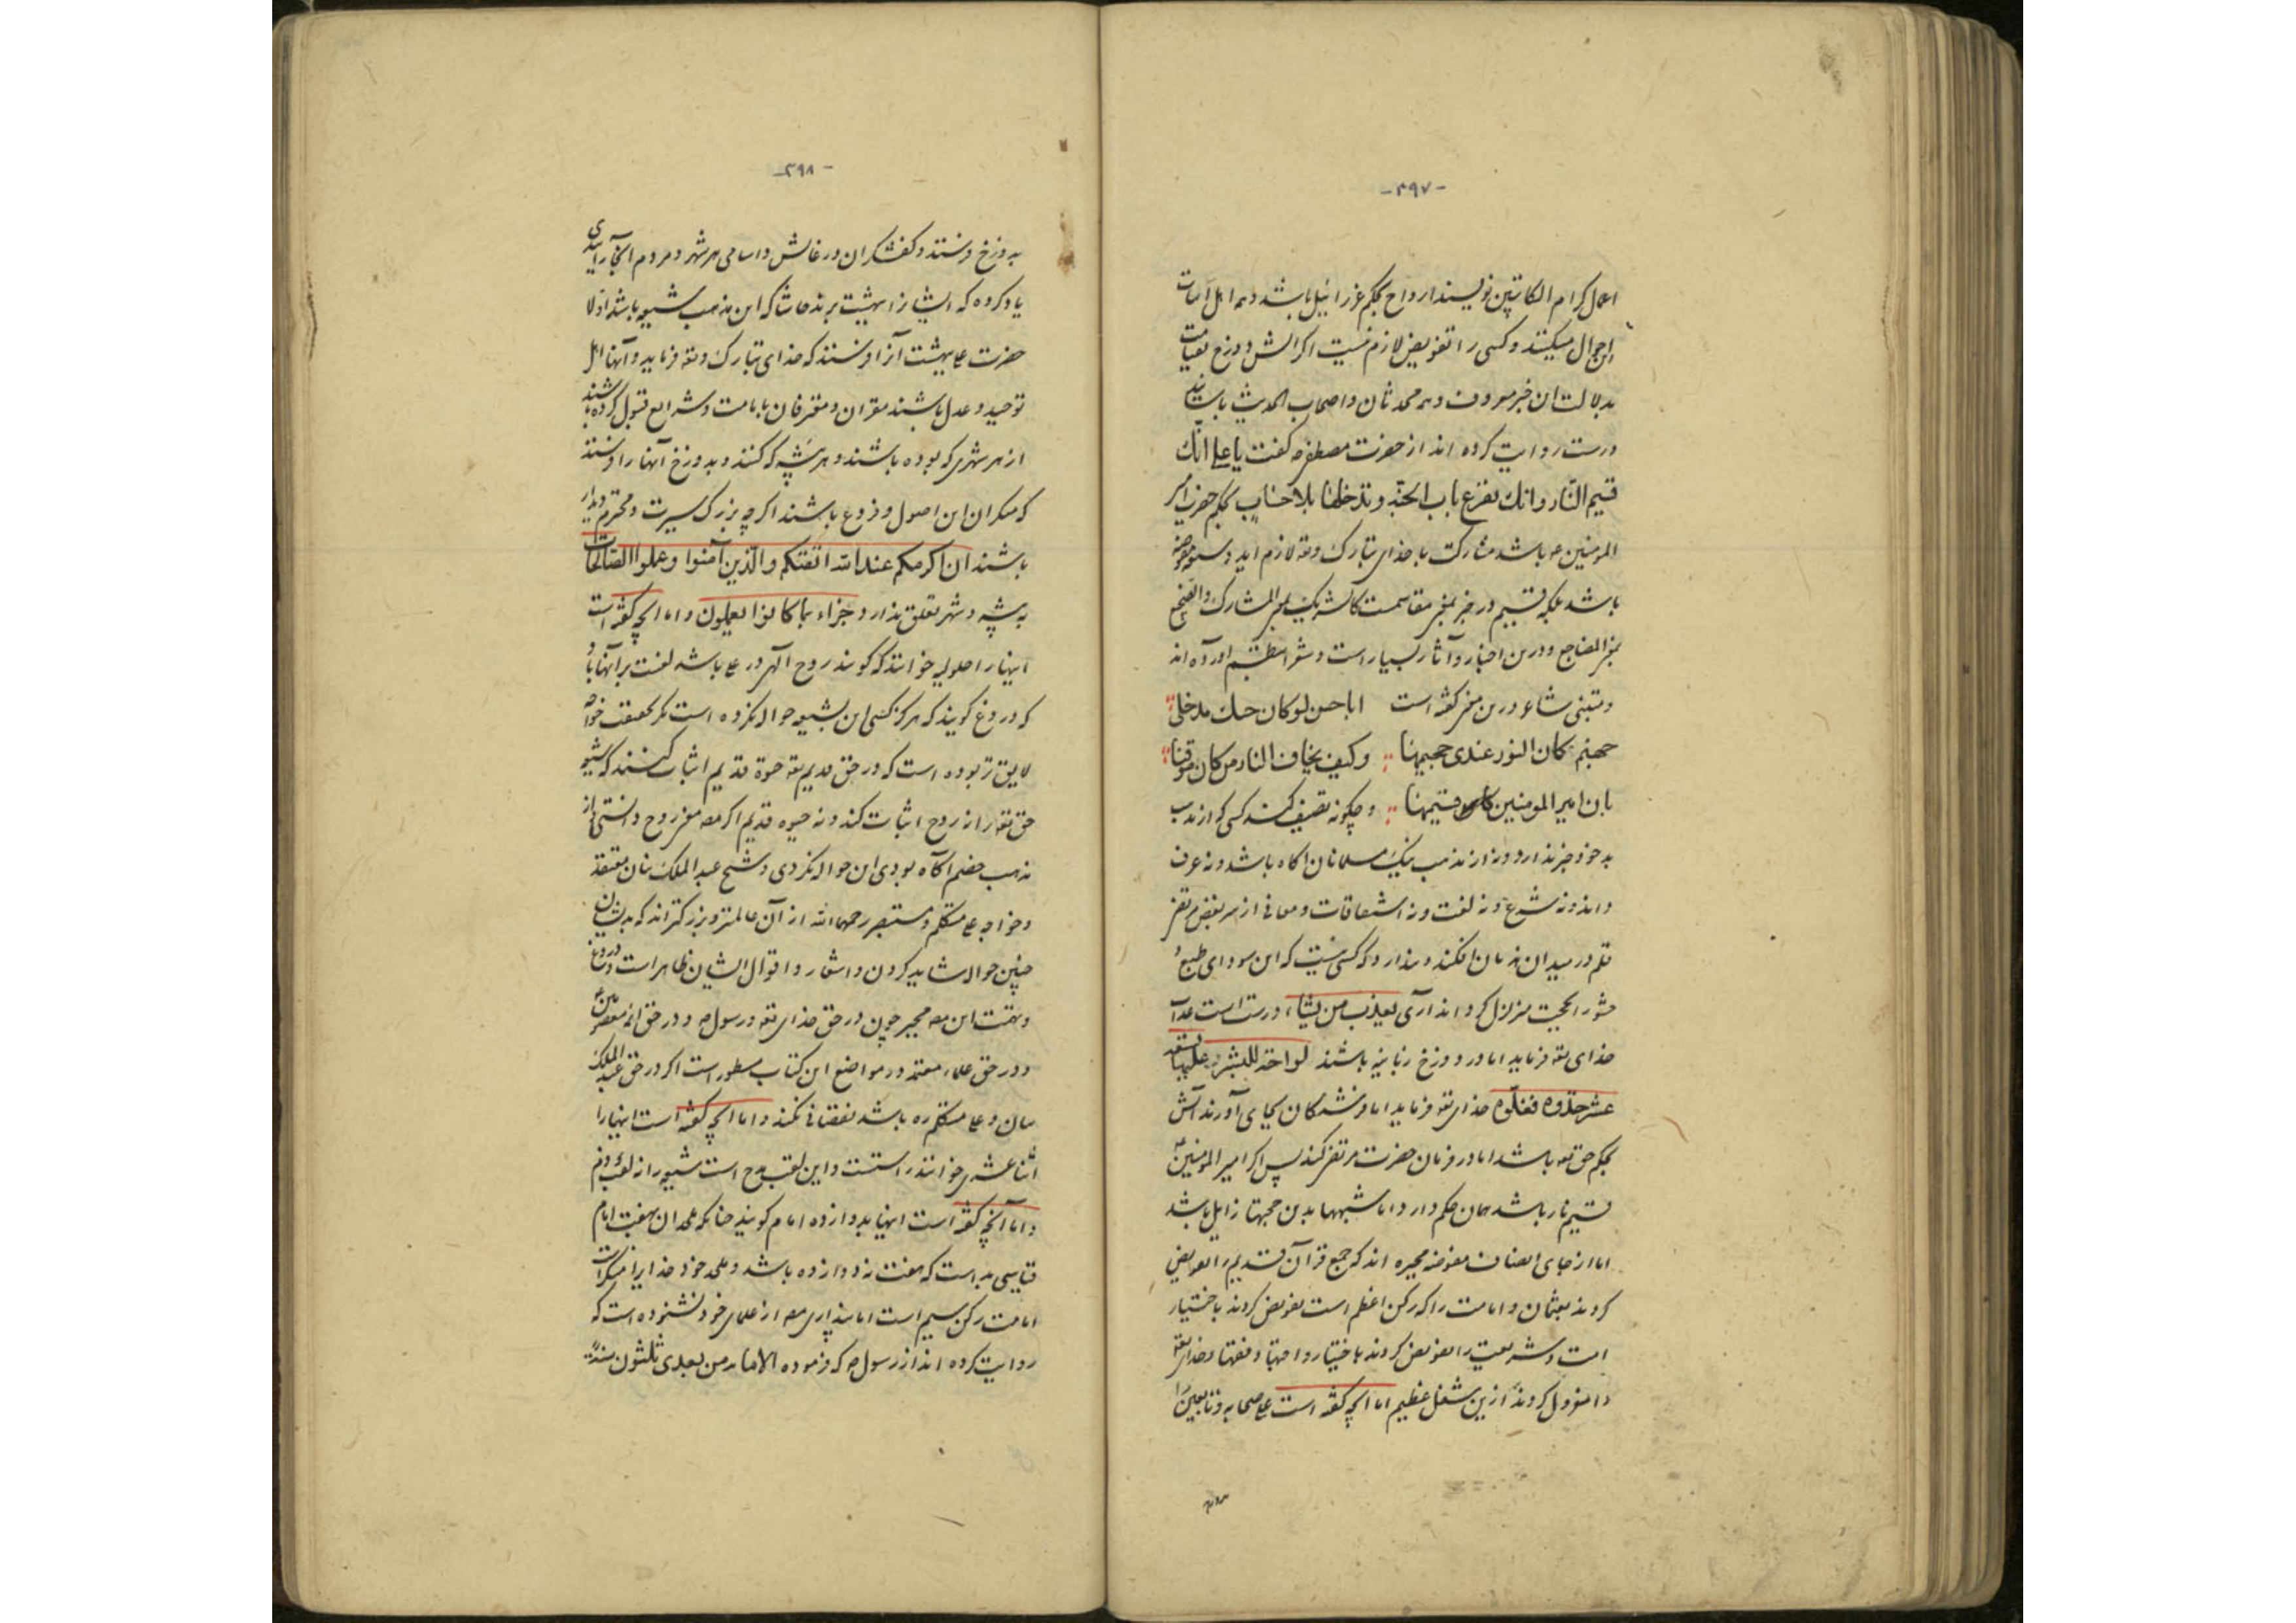 -۳۹۷-
اعمال کرام الکاتبین نویسند ارواح بحکم عزرائیل باشد و همه اهل
این اجمال میکنند و کسی را تفویض لازم نیست اکر آتش دوزخ بقیامت
بدلالت ان خبر معروف و همه محدثان و اصحاب الحدیث باسانید
درست روایت کرده اند از حضرت مصطفی ص که گفت یا علی انّک
قسیم النّار و انک تقرع باب الجنّه و تدخلها بلا حساب بحکم حضرت امیر
المومنین ع باشد مشارکت با خدای تبارک و تع لازم اید و شیعه مفوضه
باشد بلکه قسیم در خبر بمعنی مقاسمت کالشریک بمعنی المشارک و الضجیع
بمعنی المضاجع و درین اخبار و آثار بسیار است و شعرا بنظم اورده اند
و متنبی شاعر درین معنی گفته است اباحسن لو کان حبک مدخلی
جهنم کان الفوز عندی جحیمها وکیف یخاف النار من کان موقنا
بان امیر المومنین قسیمها و چکونه تصنیف کند کسی که از مذهب
بد خود خبر ندارد و نه از مذهب نیک مسلمانان اکاه باشد و نه عرف
داند و نه شرع و نه لغت و نه اشتقاقات و معانی از سر بغض مرتضی
قلم در میدان هذیان افکند و پندارد که کسی نیست که این سودای طبع و
حجت متزلزل کرداند آری یعذب من یشاء درست است عذاب
خدای تع فرماید اما در دوزخ زبانیه باشند لواحة للبشر علیها تسعة
عشر خذوه فغلّوه خدای تع فرماید اما فرشتکان بجای آورند آتش
بحکم حق تع باشد اما در فرمان حضرت مرتضی کند پس اکر امیر المومنین ع
قسیم نار باشد همان حکم دارد اما شبهها بدین حجتها زایل باشد
اما از جای انصاف مفوضه مجبره اند که جمع قرآن قدیم را تفویض
کردند بعثمان و امامت را که رکن اعظم است تفویض کردند باختیار
امت و شریعت را تفویض کردند باختیار و اجتهاد فقها و خدای تع
را معزول کردند ازین شغل عظیم اما انچه گفته است علی صحابه و تابعین را
-۳۹۸-
بدوزخ فرستد و کفشکران درغایش و اسامی هر شهر و مردم انجا را
یاد کرده که ایشان را ببهشت برند حاشا که این مذهب شیعه باشد اوّلا
حضرت علی ببهشت آنرا فرستد که خدای تبارک و تع فرماید و آنها اهل
توحید و عدل باشند مقران و معترفان بامامت و شرایع قبول کرده باشند
از هر شهری که بوده باشند و هر پیشه که کنند و بدوزخ آنها را فرستد
که منکران این اصول و فروع باشند اکر چه بزرک سیرت و محترم دیدار
باشند ان اکرمکم عند الله اتقیکم والّذین آمنوا وعملوا الصّالحات
به پیشه و شهر تعلق ندارد جزاء بما کانوا یعملون و اما انچه گفته است
اینها را حلولیه خوانند که گویند روح الهی در علی باشد لعنت بر آنها باد
که دروغ گویند که هرگز کسی این بشیعه حواله نکرده است مکر بحقیقت خواجه
لایق تر بوده است که در حق قدیم تع حیوة قدیم اثبات کنند که شیعه
حق تع را نه روح اثبات کند و نه حیوه قدیم اکر مصنف معنی روح دانستی از
مذهب خصم آگاه بودی این حواله نکردی و شیخ عبدالملک بنان معتقد
و خواجه علی متکلم و مستبصر رحمهما الله از آن عالمتر و بزرگتر اند که بدیشان
چنین حواله شاید کردن و اشعار و اقوال ایشان ظاهر است و دروغ
و تهمت این مصنف مجبر چون در حق خدای تع و رسول ص و در حق ائمه معصومین ع
و در حق علماء معتمد در مواضع این کتاب مسطور است اکر در حق عبدالملک
بنان و علی متکلم ره باشد نقصانی نکند و اما انچه گفته است اینها را
اثنا عشری خوانند راستست و این لقب مدح است شیعه را نه لقب ذم
و اما آنچه گفته است اینها بدوازده امام گویند چنانکه ملحدان بهفت امام
قیاسی بد است که هفت نه دوازده باشد و ملحد خود خدایرا منکر است
امامت رکن سیم است اما پنداری مصنف از علمای خود نشنوده است که
روایت کرده اند از رسول ص که فرموده الامامة من بعدی ثلثون سنةً